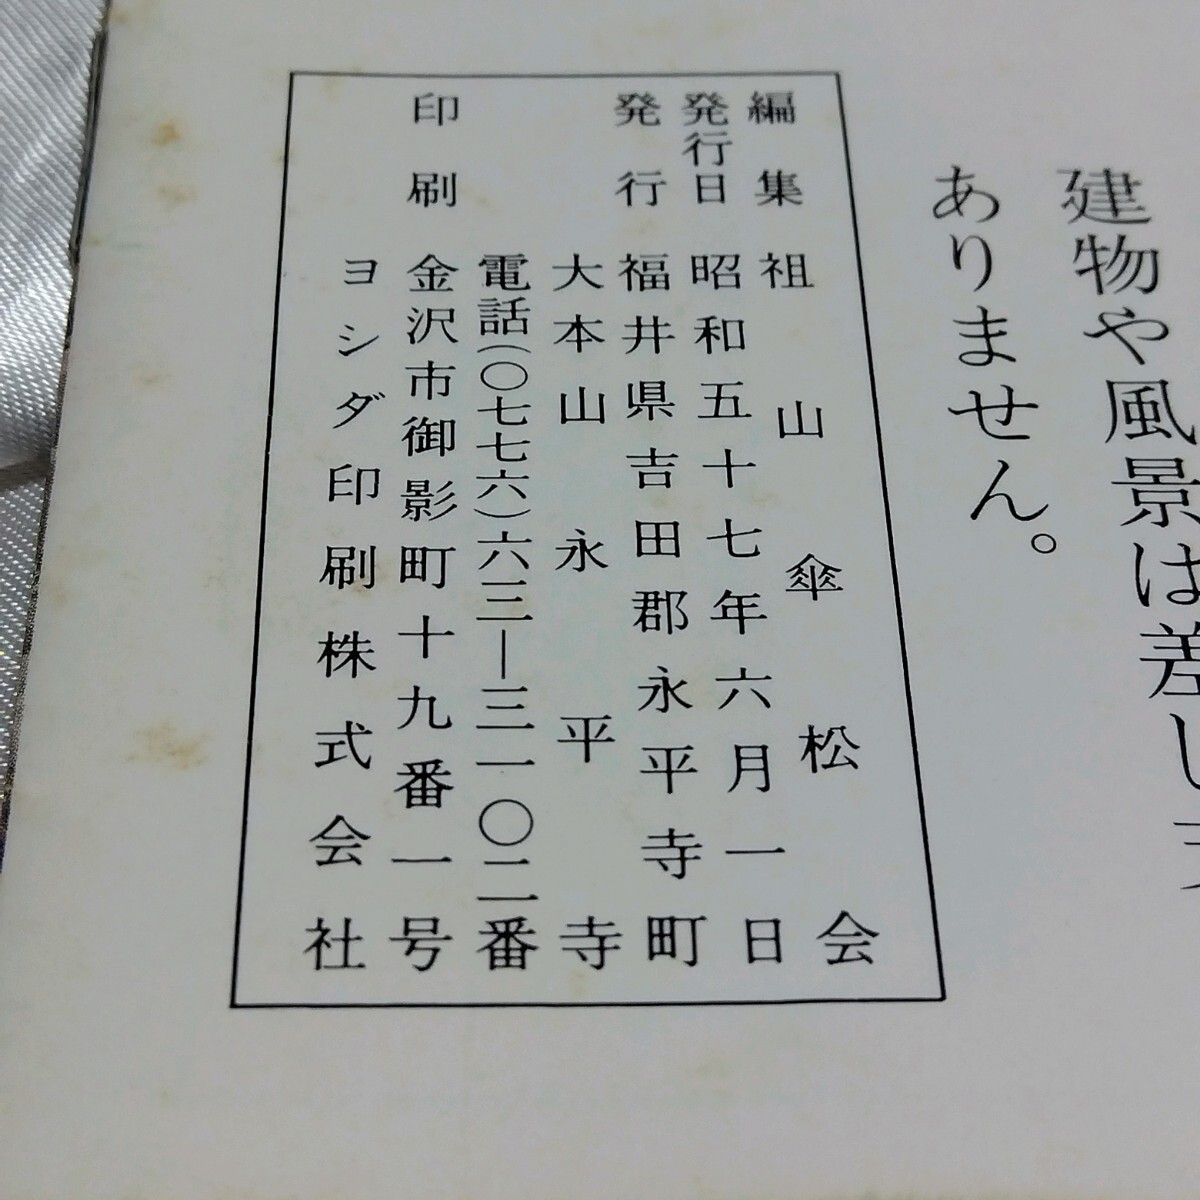 建物や風景は差し支
ありません。
編集 祖山傘松会
発行日 昭和五十七年六月一日
発行 福井県吉田郡永平寺町
大本山永平寺
電話(〇七七六)六三―三一〇二番
印刷 金沢市御影町十九番一号
ヨシダ印刷株式会社